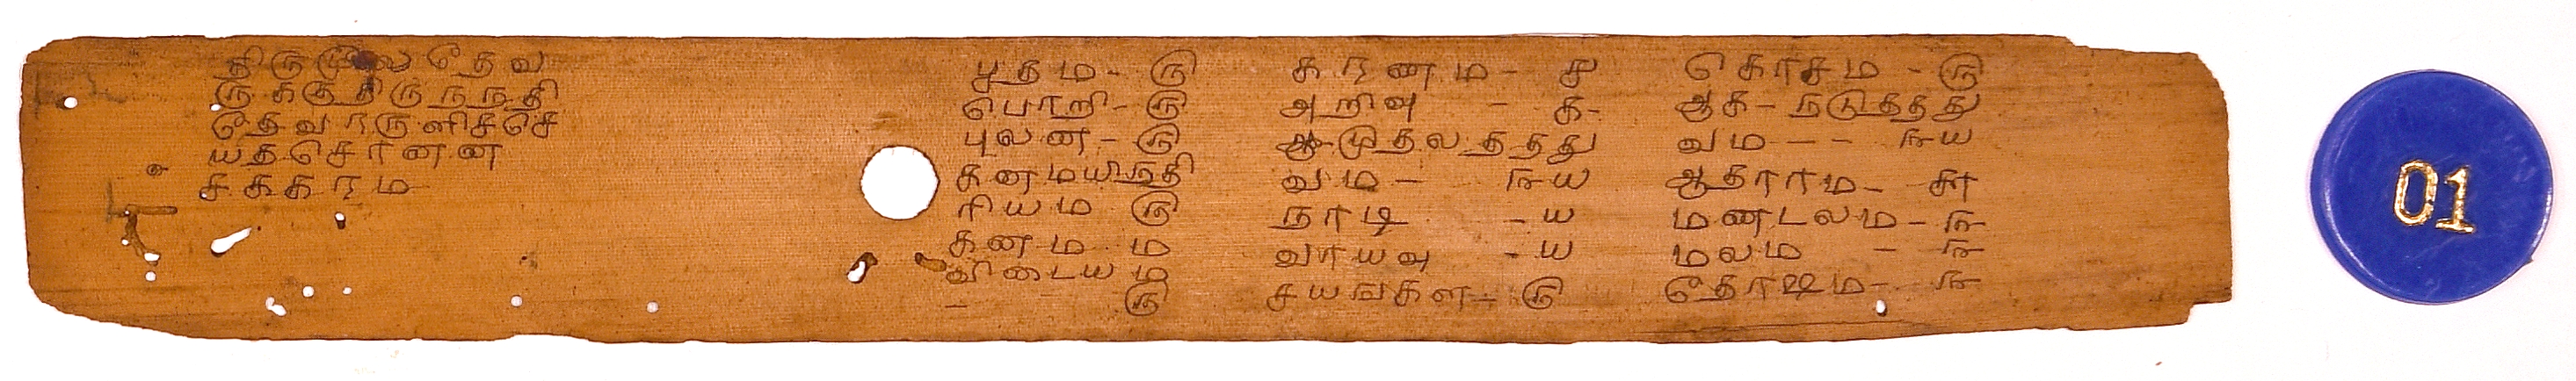 திருமூல தேவ
ருக்குதிருநநதி
தேவரருளிசசெ
யதசொனன
சககரம
பூதம - ௫
பொறி - ௫
புலன - ௫
கனமயிநதி
ரியம ௫
கனமம
விடையம
- ௫
கரணம - ௪
அறிவு - க -
ஆ - முதல தததது
வம - ௩௰
நாடி - ௰
வாயவு - ௰
சயஙகள - ௫
கொசம - ௫
ஆக - நடுதத்து
வம - - - ௩௰
ஆதாரம - ௬
மணடலம - ௩
மலம - ௩
தோஷம - ௩
01